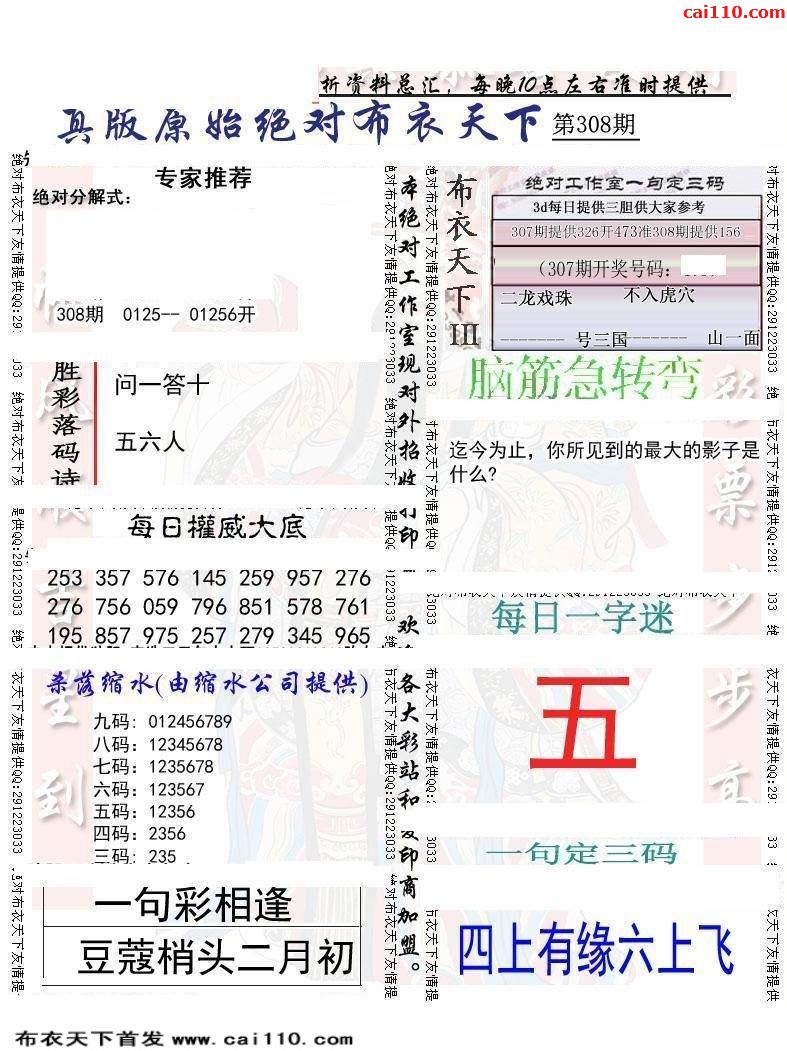 cai110.com
析资料总汇，每晚10点左右准时提供
真版原始绝对布衣天下 第308期
专家推荐
绝对分解式：
308期 0125-- 01256开
胜彩落码诗
问一答十
五六人
每日權威大底
253 357 576 145 259 957 276
276 756 059 796 851 578 761
195 857 975 257 279 345 965
杀落缩水(由缩水公司提供)
九码: 012456789
八码: 12345678
七码: 1235678
六码: 123567
五码: 12356
四码: 2356
三码: 235
一句彩相逢
豆蔻梢头二月初
本绝对工作室现对外招收
打印
欢
各大彩站和
印商加盟。
布衣天下III
绝对工作室一句定三码
3d每日提供三胆供大家参考
307期提供326开473准308期提供156
(307期开奖号码:
二龙戏珠 不入虎穴
------- 号三国------- 山一面
脑筋急转弯
迄今为止，你所见到的最大的影子是
什么?
每日一字迷
五
一句定三码
四上有缘六上飞
绝对布衣天下友情提供QQ:291223033
彩票步步高
布衣天下首发 www.cai110.com